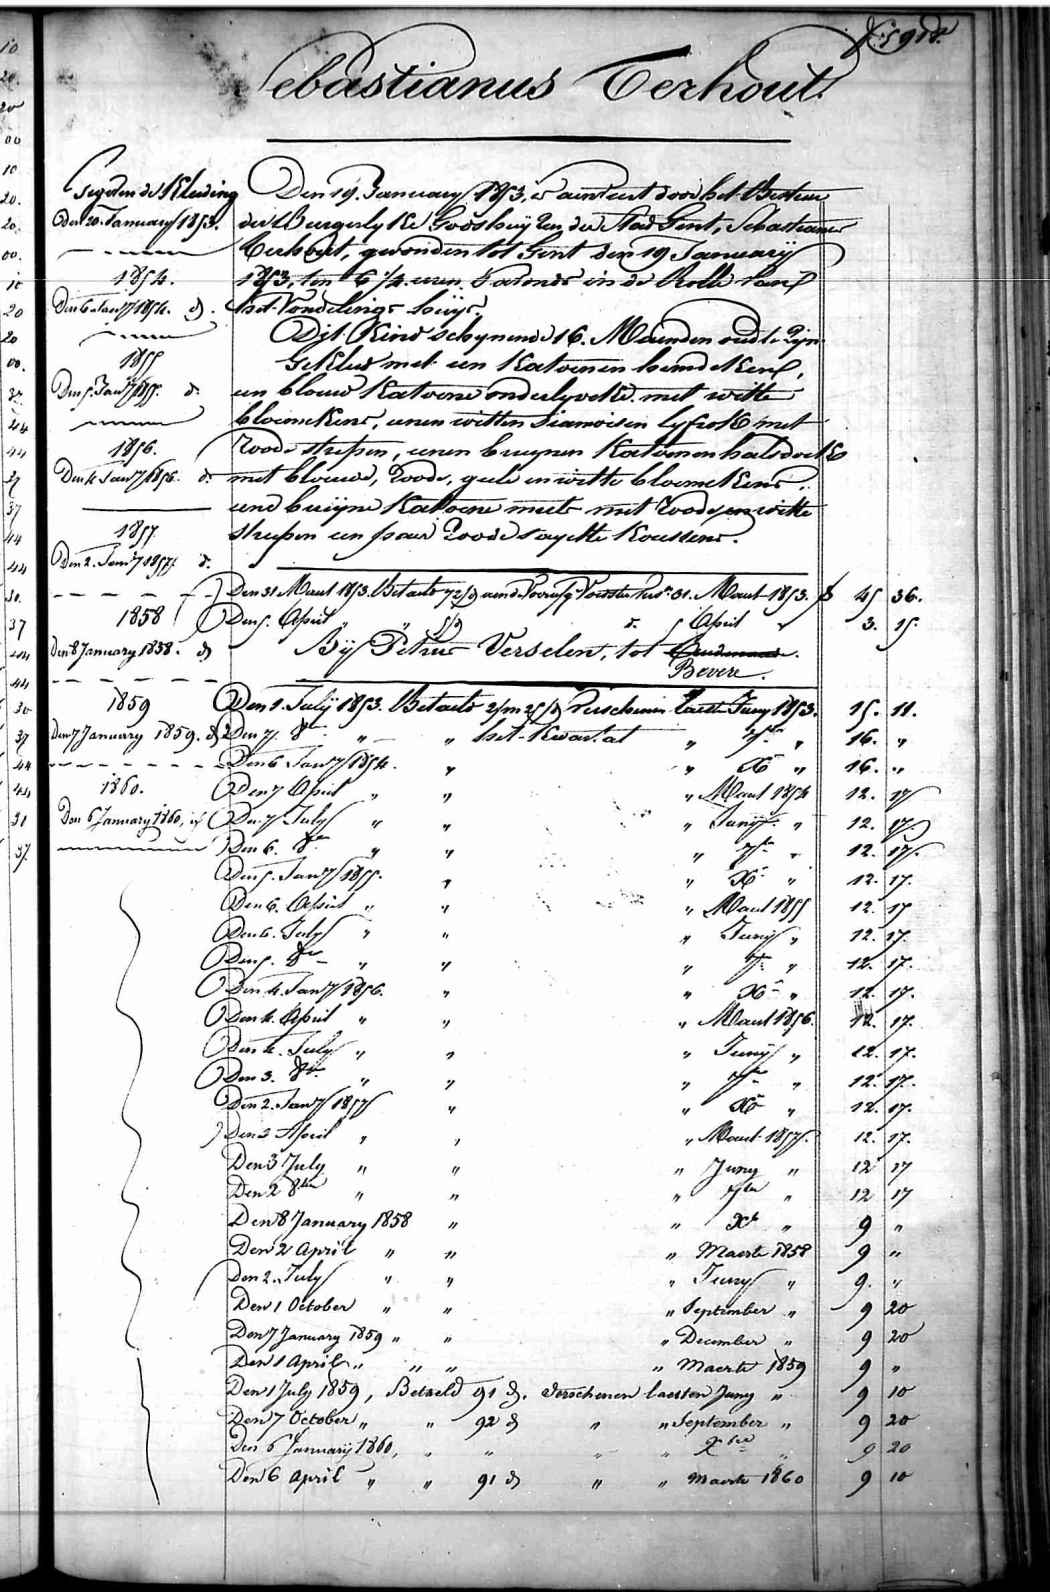 Sebastianus Terhout.
Gegeven de Kleeding
Den 20. January 1853.
1854.
Den 6. Jany 1854. d.
1855
Den 5. Jany 1855. d.
1856.
Den 4. Jany 1856. d.
1857
Den 2. Jany 1857 d.
1858
Den 8 January 1858. d
1859
Den 7 January 1859. d
1860.
Den 6 January 1860, d
Den 19. January 1853, is door het Bestuur
der Burgerlyke Godshuyzen der Stad Gent, Sebastianus
Terhout, gevonden tot Gent den 19 January
1853, ten 6 1/4 uren 's avonds in de Rolle van
het Vondelings huys.
Dit Kind schynende 16. Maenden oud te zyn
Gekleed met een Katoenen hemdeken,
een blauw Katoene onderlyveke met witte
bloemekens, eenen witten Siamoisen lyfrok met
roode strepen, eenen bruynen Katoenen halsdoek
met blauwe, roode, geele en witte bloemekens,
eene bruyne Katoene muts met roode en witte
strepen een paer roode sayette Koussens.
Den 31 Maart 1853. Betaeld 72/d aen de Voorzorg Voedster tot 31. Maart 1853. 45 36.
Den 5. April " " 5/d d. 5 April " 3. 15.
By Petrus Verselen, tot
Bevere.
Den 1. July 1853. Betaeld 2/m 25/d Verschenen laetst Juny 1853. 15. 11.
Den 7. 8bre " " het Kwartaal " 7bre " 16. "
Den 6 Jany 1854. " " Xb " 16. "
Den 7 April " " " Maart 1854 12. 17
Den 7 July " " " Juny " 12. 17.
Den 6. 8bre " " " 7bre " 12. 17.
Den 5. Jany 1855. " " Xb " 12. 17.
Den 6. April " " " Maart 1855 12. 17
Den 6. July " " " Juny " 12. 17.
Den 5. 8bre " " " 7bre " 12. 17.
Den 4. Jany 1856. " " Xb " 12. 17.
Den 4. April " " " Maart 1856. 12. 17.
Den 4. July " " " Juny " 12. 17.
Den 3. 8bre " " " 7bre " 12. 17.
Den 2. Jany 1857 " " Xb " 12. 17.
Den 3 April " " " Maart 1857. 12. 17.
Den 3 July " " " Juny " 12 17
Den 2 8bre " " " 7bre " 12 17
Den 8 January 1858 " " Xb " 9 "
Den 2 April " " " Maerte 1858 9 "
Den 2. July " " " Juny " 9. "
Den 1 October " " " September " 9 20
Den 7 January 1859 " " " December " 9 20
Den 1 April " " " " Maerte 1859 9 "
Den 1 July 1859, Betaeld 91 d. Verschenen laetsten Juny " 9 10
Den 7 October " " 92 d " " September " 9 20
Den 6 January 1860, " " " " Xbre " 9 20
Den 6 April " " 91 d " " Maerte 1860 9 10